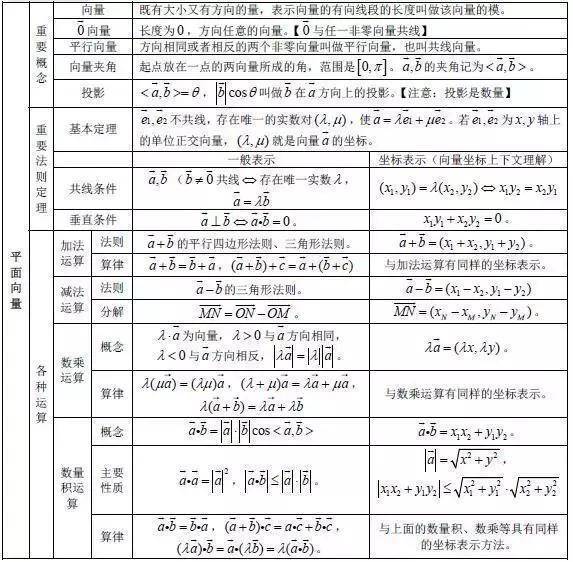 平面向量
重要概念
向量 既有大小又有方向的量，表示向量的有向线段的长度叫做该向量的模。
0⃗向量 长度为0，方向任意的向量。【0⃗与任一非零向量共线】
平行向量 方向相同或者相反的两个非零向量叫做平行向量，也叫共线向量。
向量夹角 起点放在一点的两向量所成的角，范围是[0,π]。a⃗,b⃗的夹角记为<a⃗,b⃗>。
投影 <a⃗,b⃗>=θ，|b⃗|cosθ叫做b⃗在a⃗方向上的投影。【注意：投影是数量】
重要法则定理
基本定理 e⃗₁,e⃗₂不共线，存在唯一的实数对(λ,μ)，使a⃗=λe⃗₁+μe⃗₂。若e⃗₁,e⃗₂为x,y轴上
的单位正交向量，(λ,μ)就是向量a⃗的坐标。
一般表示 坐标表示（向量坐标上下文理解）
共线条件 a⃗,b⃗（b⃗≠0⃗共线⇔存在唯一实数λ，
a⃗=λb⃗
(x₁,y₁)=λ(x₂,y₂)⇔x₁y₂=x₂y₁
垂直条件 a⃗⊥b⃗⇔a⃗•b⃗=0。 x₁y₁+x₂y₂=0。
各种运算
加法运算
法则 a⃗+b⃗的平行四边形法则、三角形法则。 a⃗+b⃗=(x₁+x₂,y₁+y₂)。
算律 a⃗+b⃗=b⃗+a⃗，(a⃗+b⃗)+c⃗=a⃗+(b⃗+c⃗) 与加法运算有同样的坐标表示。
减法运算
法则 a⃗-b⃗的三角形法则。 a⃗-b⃗=(x₁-x₂,y₁-y₂)
分解 MN⃗=ON⃗-OM⃗。 MN⃗=(x_N-x_M,y_N-y_M)。
数乘运算
概念 λ·a⃗为向量，λ>0与a⃗方向相同，
λ<0与a⃗方向相反，|λa⃗|=|λ||a⃗|。
λa⃗=(λx,λy)。
算律 λ(μa⃗)=(λμ)a⃗，(λ+μ)a⃗=λa⃗+μa⃗，
λ(a⃗+b⃗)=λa⃗+λb⃗
与数乘运算有同样的坐标表示。
数量积运算
概念 a⃗•b⃗=|a⃗|·|b⃗|cos<a⃗,b⃗> a⃗•b⃗=x₁x₂+y₁y₂。
主要性质 a⃗•a⃗=|a⃗|²，|a⃗•b⃗|≤|a⃗|·|b⃗|。
|a⃗|=√(x²+y²)，
|x₁x₂+y₁y₂|≤√(x₁²+y₁²)·√(x₂²+y₂²)
算律 a⃗•b⃗=b⃗•a⃗，(a⃗+b⃗)•c⃗=a⃗•c⃗+b⃗•c⃗，
(λa⃗)•b⃗=a⃗•(λb⃗)=λ(a⃗•b⃗)。
与上面的数量积、数乘等具有同样
的坐标表示方法。